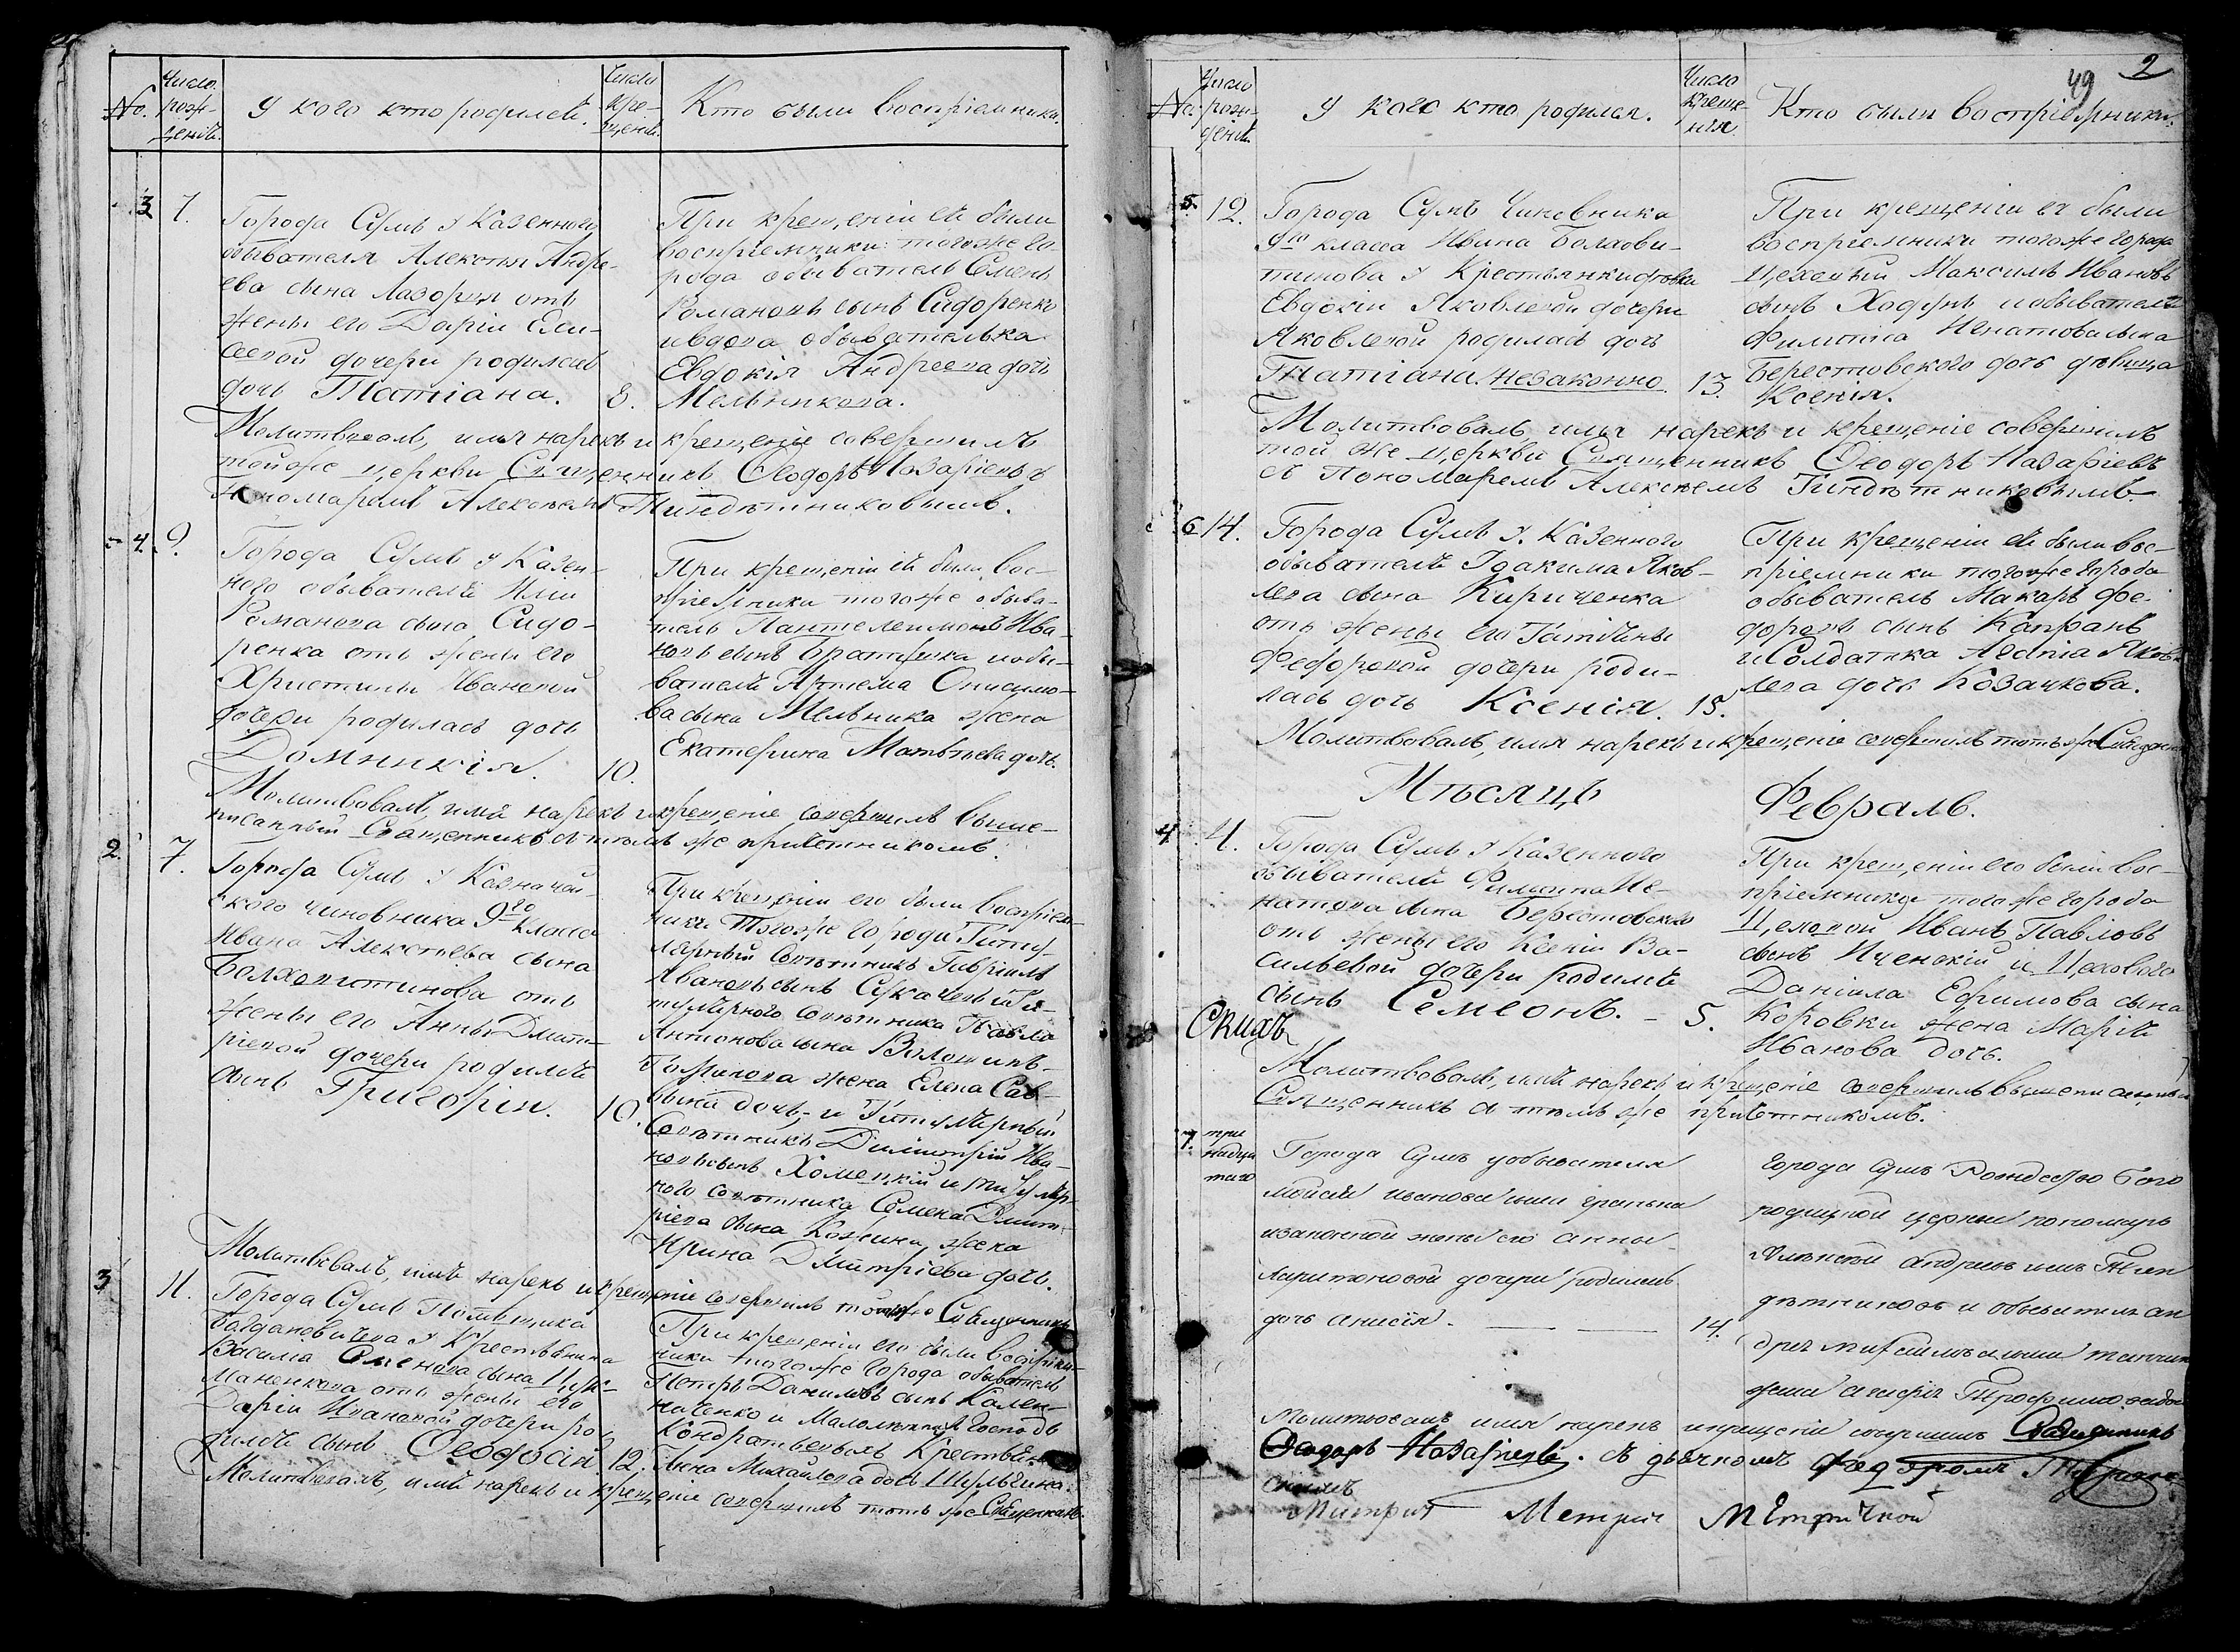 No.
Число рож- денія.
У кого кто родился.
Число кре- щенія.
Кто были воспріемники.
3 7.
Города Сумъ у Казеннаго
обывателя Алексѣя Андре-
ева сына Лазоря отъ
жены его Даріи Ели-
сеевой дочери родилась
дочь Татіана. 8.
При крещеніи ея были
воспріемники: тогоже го-
рода обыватель Семенъ
Романовъ сынъ Сидоренко
и вдова обывателька
Евдокія Андреева дочь
Мельникова.
Молитвовалъ, имя нарекъ и крещеніе совершилъ
тойже церкви Священникъ Ѳеодоръ Назаріевъ с
Пономаремъ Алексѣемъ
4. 9.
Города Сумъ у Казен-
ного обывателя Иліи
Романова сына Сидо-
ренка отъ жены его
Христины Ивановой
дочери родилась дочь
Домникія. 10.
При крещеніи ея были вос-
пріемники тогоже обыва-
тель Пантелеимонъ Ива-
новъ сынъ Братушка и обы-
вателя Артема Онисимо-
ва сына Мельника жена
Екатерина Матвѣева дочь.
Молитвовалъ, имя нарекъ и крещеніе совершилъ выше-
писанный Священникъ с тѣмъ же причетникомъ.
2. 7.
Города Сумъ у Казначей-
ского чиновника 9го класса
Ивана Алексѣева сына
Болховитинова отъ
жены его Анны Дмит-
ріевой дочери родился
сынъ Григорій. 10.
При крещеніи его были воспріем-
ники Тогоже города Титу-
лярный Совѣтникъ Гавріилъ
Ивановъ сынъ Сукачевъ и Ти-
тулярного Совѣтника Павла
Антонова сына
жена Елена Сав-
вина дочь, и Титулярный
Совѣтникъ Димитрій Ива-
новъ сынъ Хомецкій и титуляр-
ного совѣтника Семена Дмит-
ріева сына жена
Ирина Дмитріева дочь.
Молитвовалъ, имя нарекъ и крещеніе совершилъ тотъ же Священникъ
3 11.
Города Сумъ Помѣщика
Богдановичева у Крестьянина
Василія Семенова сына
отъ жены его
Даріи Ивановой дочери ро-
дился сынъ Ѳеодосій. 12.
При крещеніи его были воспріем-
ники тогоже города обыватель
Петръ Даниловъ сынъ Кален-
ниченко и
Анна Михайлова дочь Шульгина.
Молитвовалъ, имя нарекъ и крещеніе совершилъ тотъ же Священникъ.
49 2
No.
Число рож- денія.
У кого кто родился.
Число креще- нія.
Кто были воспріемники.
5. 12.
Города Сумъ Чиновника
9го класса Ивана Болхови-
тинова у Крестьянки
Евдокіи Яковлевой дочери
Яковлевой родилась дочь
Татіана. незаконно. 13.
При крещеніи ея были
воспріемники тогоже города
Цеховый Максимъ Ивановъ
сынъ и обывателя
Филиппа Игнатова сына
Берестовского дочь дѣвица
Ксенія.
Молитвовалъ имя нарекъ и крещеніе совершилъ
той же церкви Священникъ Ѳеодоръ Назаріевъ
съ Пономаремъ Алексѣемъ
6 14.
Города Сумъ у Казенного
обывателя Іоакима Яков-
лева сына Кириченка
отъ жены его Татіаны
Федоровой дочери роди-
лась дочь Ксенія. 15.
При крещеніи ея были вос-
пріемники тогоже города
обыватель Макаръ Фе-
доровъ сынъ Капранъ
и Солдатка Яков-
лева дочь Козачкова.
Молитвовалъ, имя нарекъ и крещеніе совершилъ тотъ же
Мѣсяцъ Февраль.
4 4.
Города Сумъ у Казенного
обывателя Филиппа Иг-
натова сына Берестовского
отъ жены его Ксеніи Ва-
сильевой дочери родился
сынъ Семеонъ. 5.
При крещеніи его были вос-
пріемники тогоже города
Цеховой Иванъ Павловъ
сынъ Иченскій и Цехового
Даніила Ефимова сына
Коровки жена Марія
Иванова дочь.
Молитвовалъ, имя нарекъ и крещеніе совершилъ вышеписанный
Священникъ с тѣмъ же причетникомъ.
7. три надца таго
Города Сумъ уобывателя
сына
жены его анны
Харитоновой дочери родилась
дочь анисія. 14.
Города Сумъ Рождество Бого
родицкой церкви пономарь
и обывателя ан
дрея
жена агафія
Молитвовалъ имя нарекъ икрещеніе совершилъ Священникъ
Ѳеодоръ Назаріевъ. съ дьячкомъ
Метрич Метрич Метрической